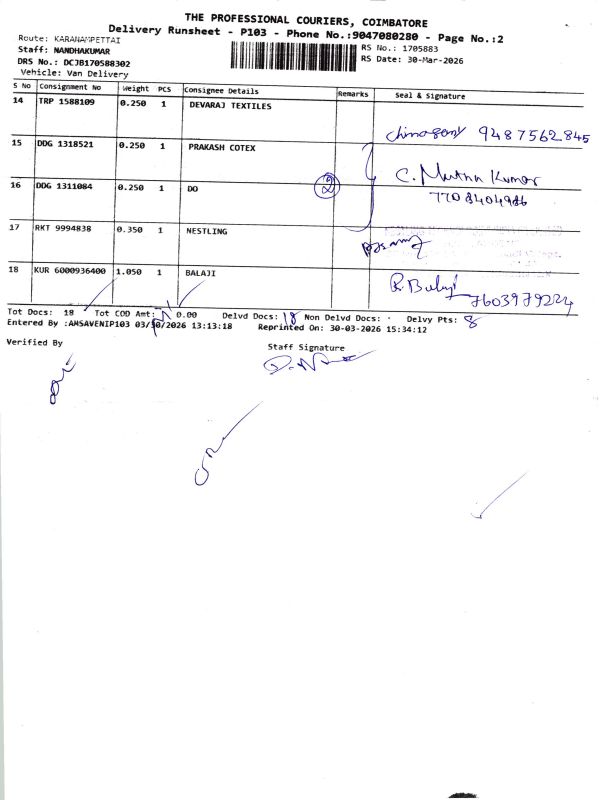 THE PROFESSIONAL COURIERS, COIMBATORE
Delivery Runsheet - P103 - Phone No.:9047080280 - Page No.:2
Route: KARANAMPETTAI
RS No.: 1705883
Staff: NANDHAKUMAR
RS Date: 30-Mar-2026
DRS No.: DCJB170588302
Vehicle: Van Delivery
S No Consignment No Weight PCS Consignee Details Remarks Seal & Signature
14 TRP 1588109 0.250 1 DEVARAJ TEXTILES
9487562845
15 DDG 1318521 0.250 1 PRAKASH COTEX
C. Muthu Kumar
16 DDG 1311084 0.250 1 DO 2
7708404986
17 RKT 9994838 0.350 1 NESTLING
18 KUR 6000936400 1.050 1 BALAJI R. Balaji
7603979224
Tot Docs: 18 Tot COD Amt: 0.00 Delvd Docs: 18 Non Delvd Docs: Delvy Pts: 8
Entered By :AMSAVENIP103 03/30/2026 13:13:18 Reprinted On: 30-03-2026 15:34:12
Verified By
Staff Signature